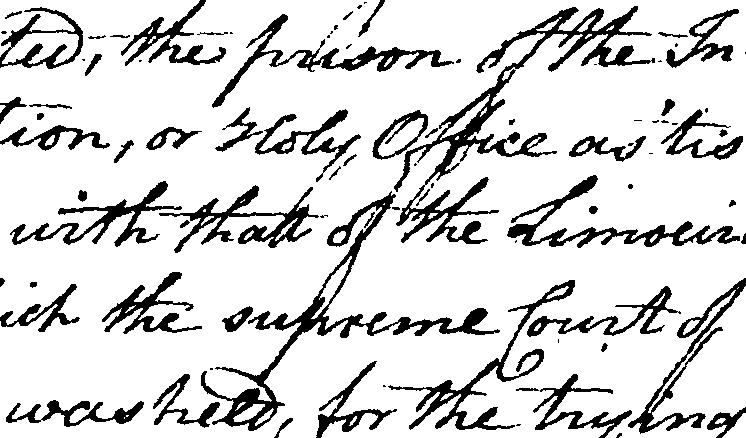 ted, the prison of the In-
tion, or Holy Office as 'tis
with that of the Limoeiro
ich the supreme Court of
was held, for the trying